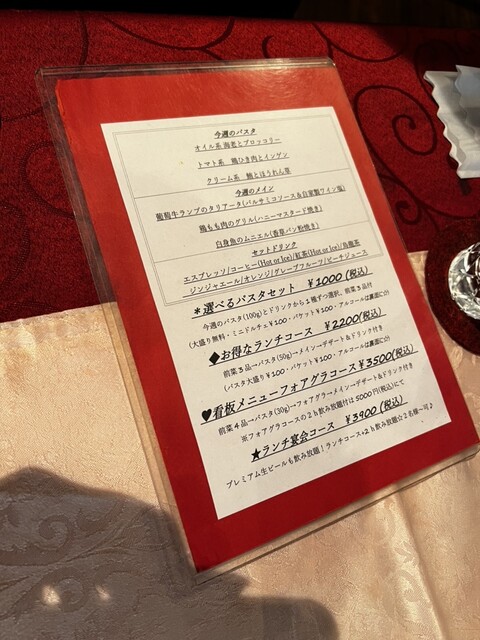 今週のパスタ
オイル系 海老とブロッコリー
トマト系 鶏ひき肉とインゲン
クリーム系 鮭とほうれん草
今週のメイン
葡萄牛ランプのタリアータ(バルサミコソース&自家製ワイン塩)
鶏もも肉のグリル(ハニーマスタード焼き)
白身魚のムニエル(香草パン粉焼き)
セットドリンク
エスプレッソ/コーヒー(Hot or Ice)/紅茶(Hot or Ice)/烏龍茶
ジンジャエール/オレンジ/グレープフルーツ/ピーチジュース
*選べるパスタセット ¥1000(税込)
今週のパスタ(100g)とドリンクから1種ずつ選択、前菜3品付
(大盛り無料・ミニドルチェ¥100・バケット¥100・アルコールは裏面に☆)
◆お得なランチコース ¥2200(税込)
前菜3品→パスタ(50g)→メイン→デザート&ドリンク付き
(パスタ大盛り¥100・バケット¥100・アルコールは裏面に☆)
♥看板メニューフォアグラコース¥3500(税込)
前菜4品→パスタ(30g)→フォアグラ→メイン→デザート&ドリンク付
※フォアグラコースの2h飲み放題付は5000円(税込)にて
★ランチ宴会コース ¥3900(税込)
プレミアム生ビールも飲み放題!ランチコース+2h飲み放題☆2名様~可♪